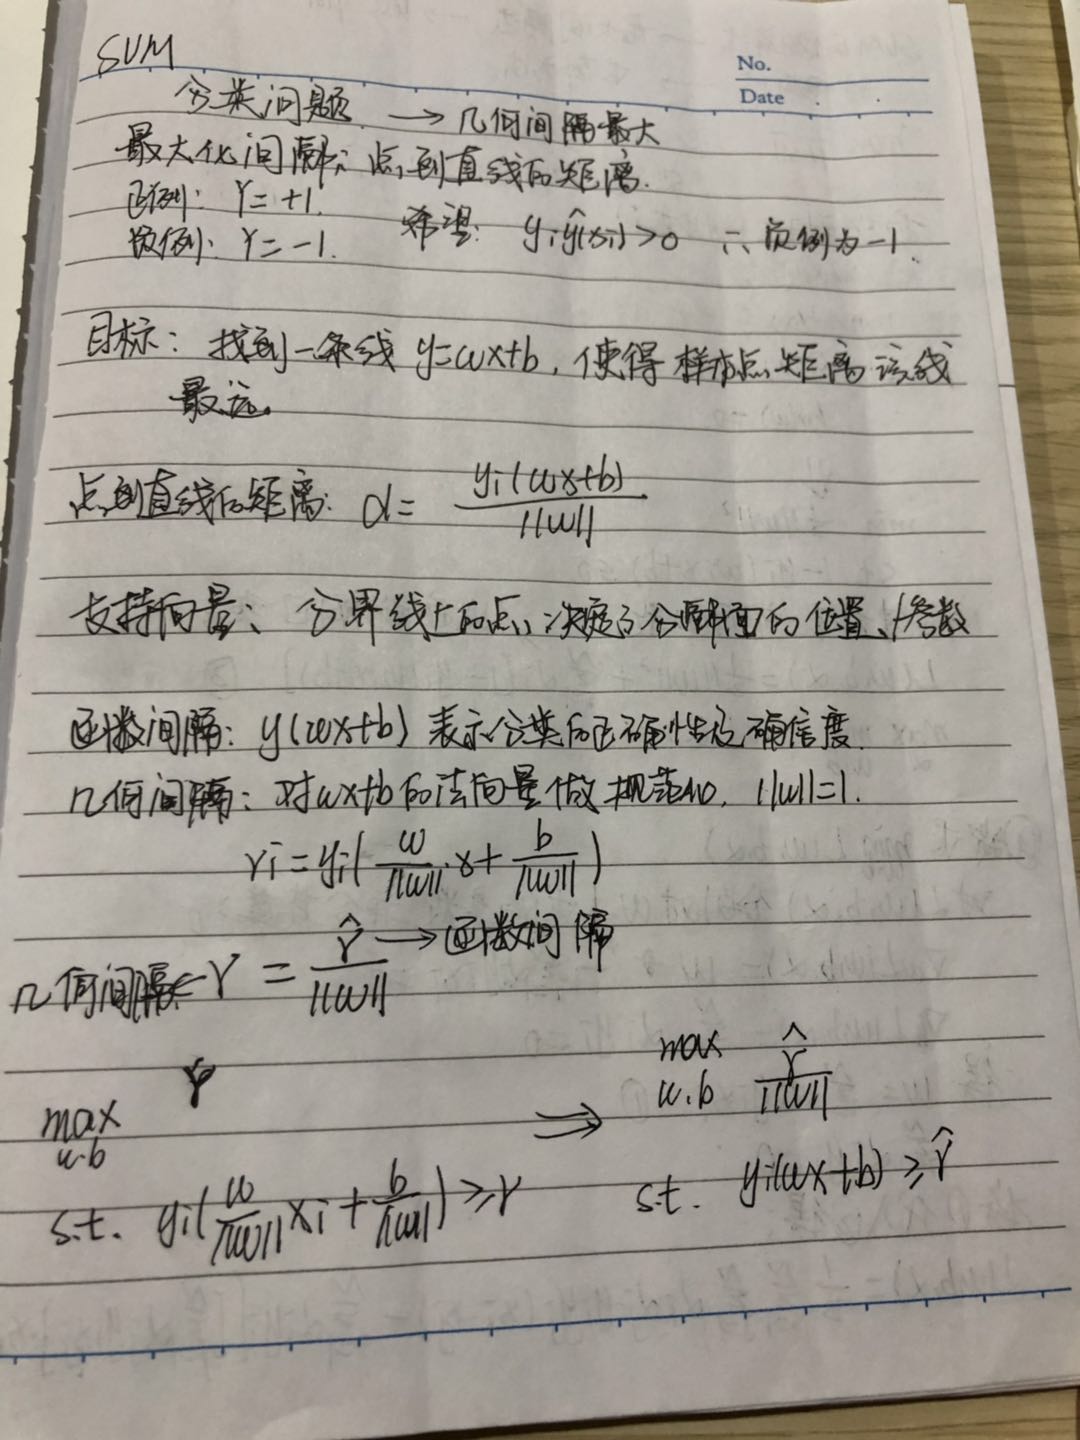 SVM
No.
Date
分类问题 → 几何间隔最大
最大化间隔: 点到直线的距离.
正例: Y=+1.
负例: Y=-1. 希望: yiŷ(xi)>0 ∴负例为-1.
目标: 找到一条线 y=wx+b, 使得样本点距离该线
最远。
点到直线的距离: d= yi(wx+b) / ||w||
支持向量: 分界线上的点, 决定了分隔面的位置、/参数
函数间隔: y(wx+b) 表示分类的正确性及确信度.
几何间隔: 对wx+b的法向量做规范化, ||w||=1.
γi=yi(w/||w||·x+b/||w||)
几何间隔←γ = γ̂/||w|| → 函数间隔
max w.b γ ⇒ max w.b γ̂/||w||
s.t. yi(w/||w|| xi + b/||w||) ≥γ s.t. yi(wx+b) ≥γ̂